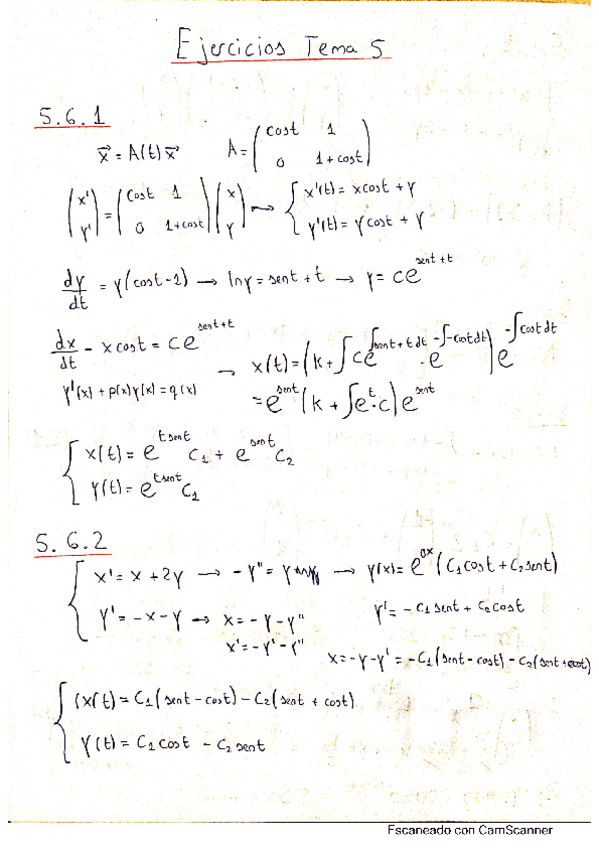 Ejercicios Tema 5
5.6.1
x⃗' = A(t)x⃗    A = (cost 1 / 0 1+cost)
(x' / y') = (cost 1 / 0 1+cost)(x / y) → { x'(t) = x cost + y
y'(t) = y cost + y
dy/dt = y(cost-1) → ln y = sent + t → y = ce^(sent+t)
dx/dt - x cost = ce^(sent+t)
y'(x) + p(x)y(x) = q(x)
→ x(t) = (k + ∫ce^(∫sent+t dt) · e^(-∫-cost dt)) e^(-∫cost dt)
= e^(sent) (k + ∫e^t·c) e^(sent)
{ x(t) = e^(t sent) C₁ + e^(sent) C₂
y(t) = e^(t sent) C₁
5.6.2
{ x' = x + 2y → -y'' = y → y(x) = e^(0x) (C₁cost + C₂sent)
y' = -x - y → x = -y - y''    y' = -C₁ sent + C₂ cost
x' = -y' - y''
x = -y - y' = -C₁(sent - cost) - C₂(sent + cost)
{ (x(t) = C₁(sent - cost) - C₂(sent + cost)
y(t) = C₁ cost - C₂ sent
Escaneado con CamScanner